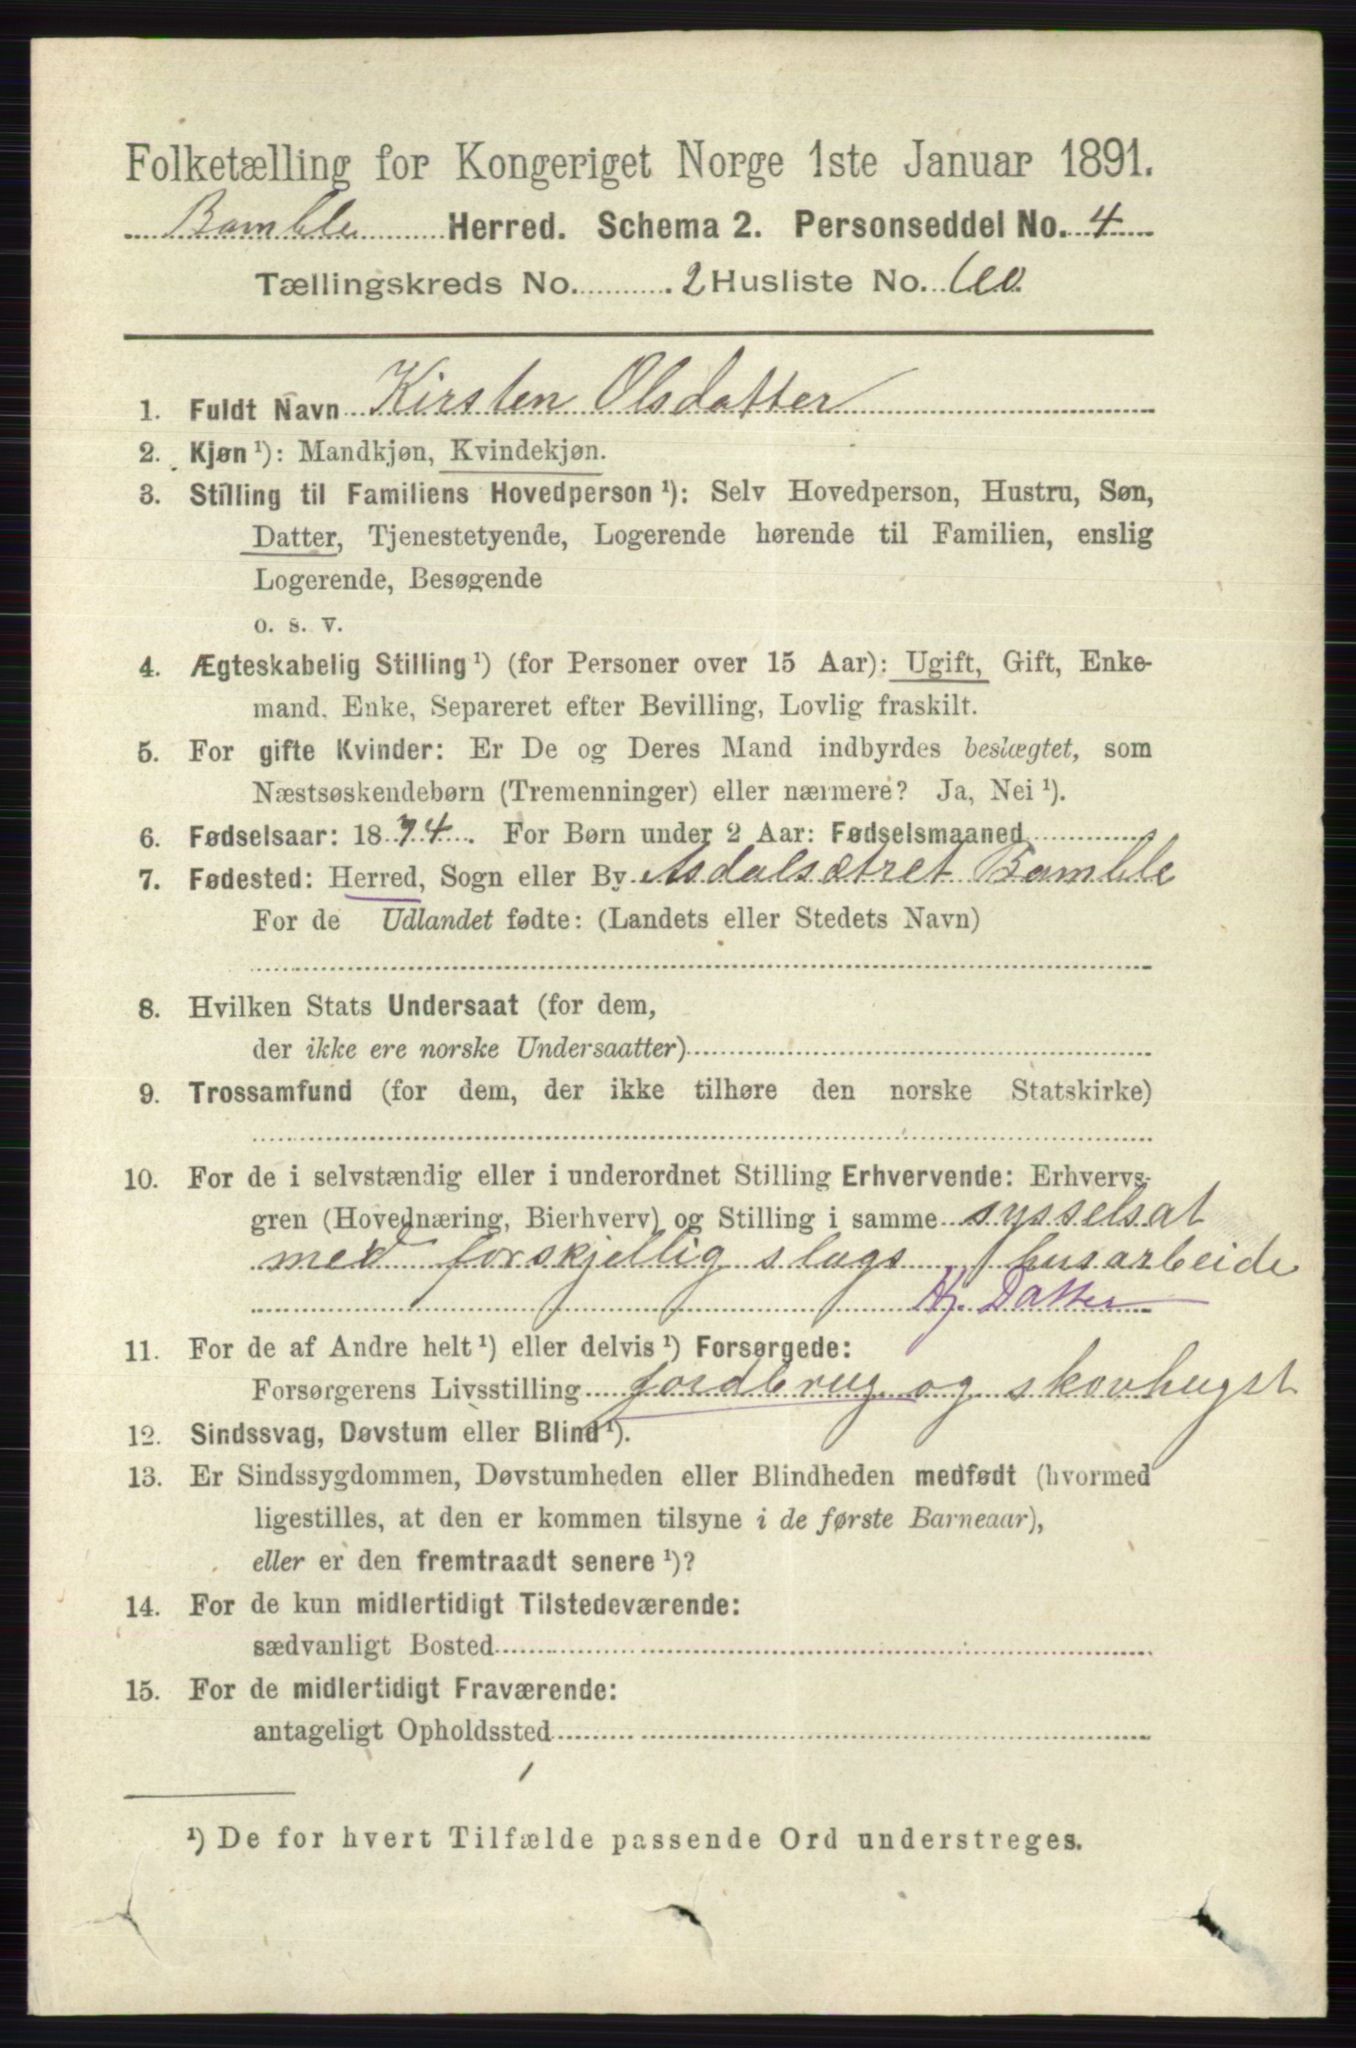 Folketælling for Kongeriget Norge 1ste Januar 1891.
Bamble Herred. Schema 2. Personseddel No. 4
Tællingskreds No. 2 Husliste No. 60.
1. Fuldt Navn Kirsten Olsdatter
2. Kjøn ¹): Mandkjøn, Kvindekjøn.
3. Stilling til Familiens Hovedperson ¹): Selv Hovedperson, Hustru, Søn,
Datter, Tjenestetyende, Logerende hørende til Familien, enslig
Logerende, Besøgende
o. s. v.
4. Ægteskabelig Stilling ¹) (for Personer over 15 Aar): Ugift, Gift, Enke-
mand, Enke, Separeret efter Bevilling, Lovlig fraskilt.
5. For gifte Kvinder: Er De og Deres Mand indbyrdes beslægtet, som
Næstsøskendebørn (Tremenninger) eller nærmere? Ja, Nei ¹).
6. Fødselsaar: 1874. For Børn under 2 Aar: Fødselsmaaned
7. Fødested: Herred, Sogn eller By Asdalsætret Bamble
For de Udlandet fødte: (Landets eller Stedets Navn)
8. Hvilken Stats Undersaat (for dem,
der ikke ere norske Undersaatter)
9. Trossamfund (for dem, der ikke tilhøre den norske Statskirke)
10. For de i selvstændig eller i underordnet Stilling Erhvervende: Erhvervs-
gren (Hovednæring, Bierhverv) og Stilling i samme sysselsat
med forskjellig slags husarbeide
Datter
11. For de af Andre helt ¹) eller delvis ¹) Forsørgede:
Forsørgerens Livsstilling jordbrug og skovhugst
12. Sindssvag, Døvstum eller Blind ¹).
13. Er Sindssygdommen, Døvstumheden eller Blindheden medfødt (hvormed
ligestilles, at den er kommen tilsyne i de første Barneaar),
eller er den fremtraadt senere ¹)?
14. For de kun midlertidigt Tilstedeværende:
sædvanligt Bosted
15. For de midlertidigt Fraværende:
antageligt Opholdssted
¹) De for hvert Tilfælde passende Ord understreges.